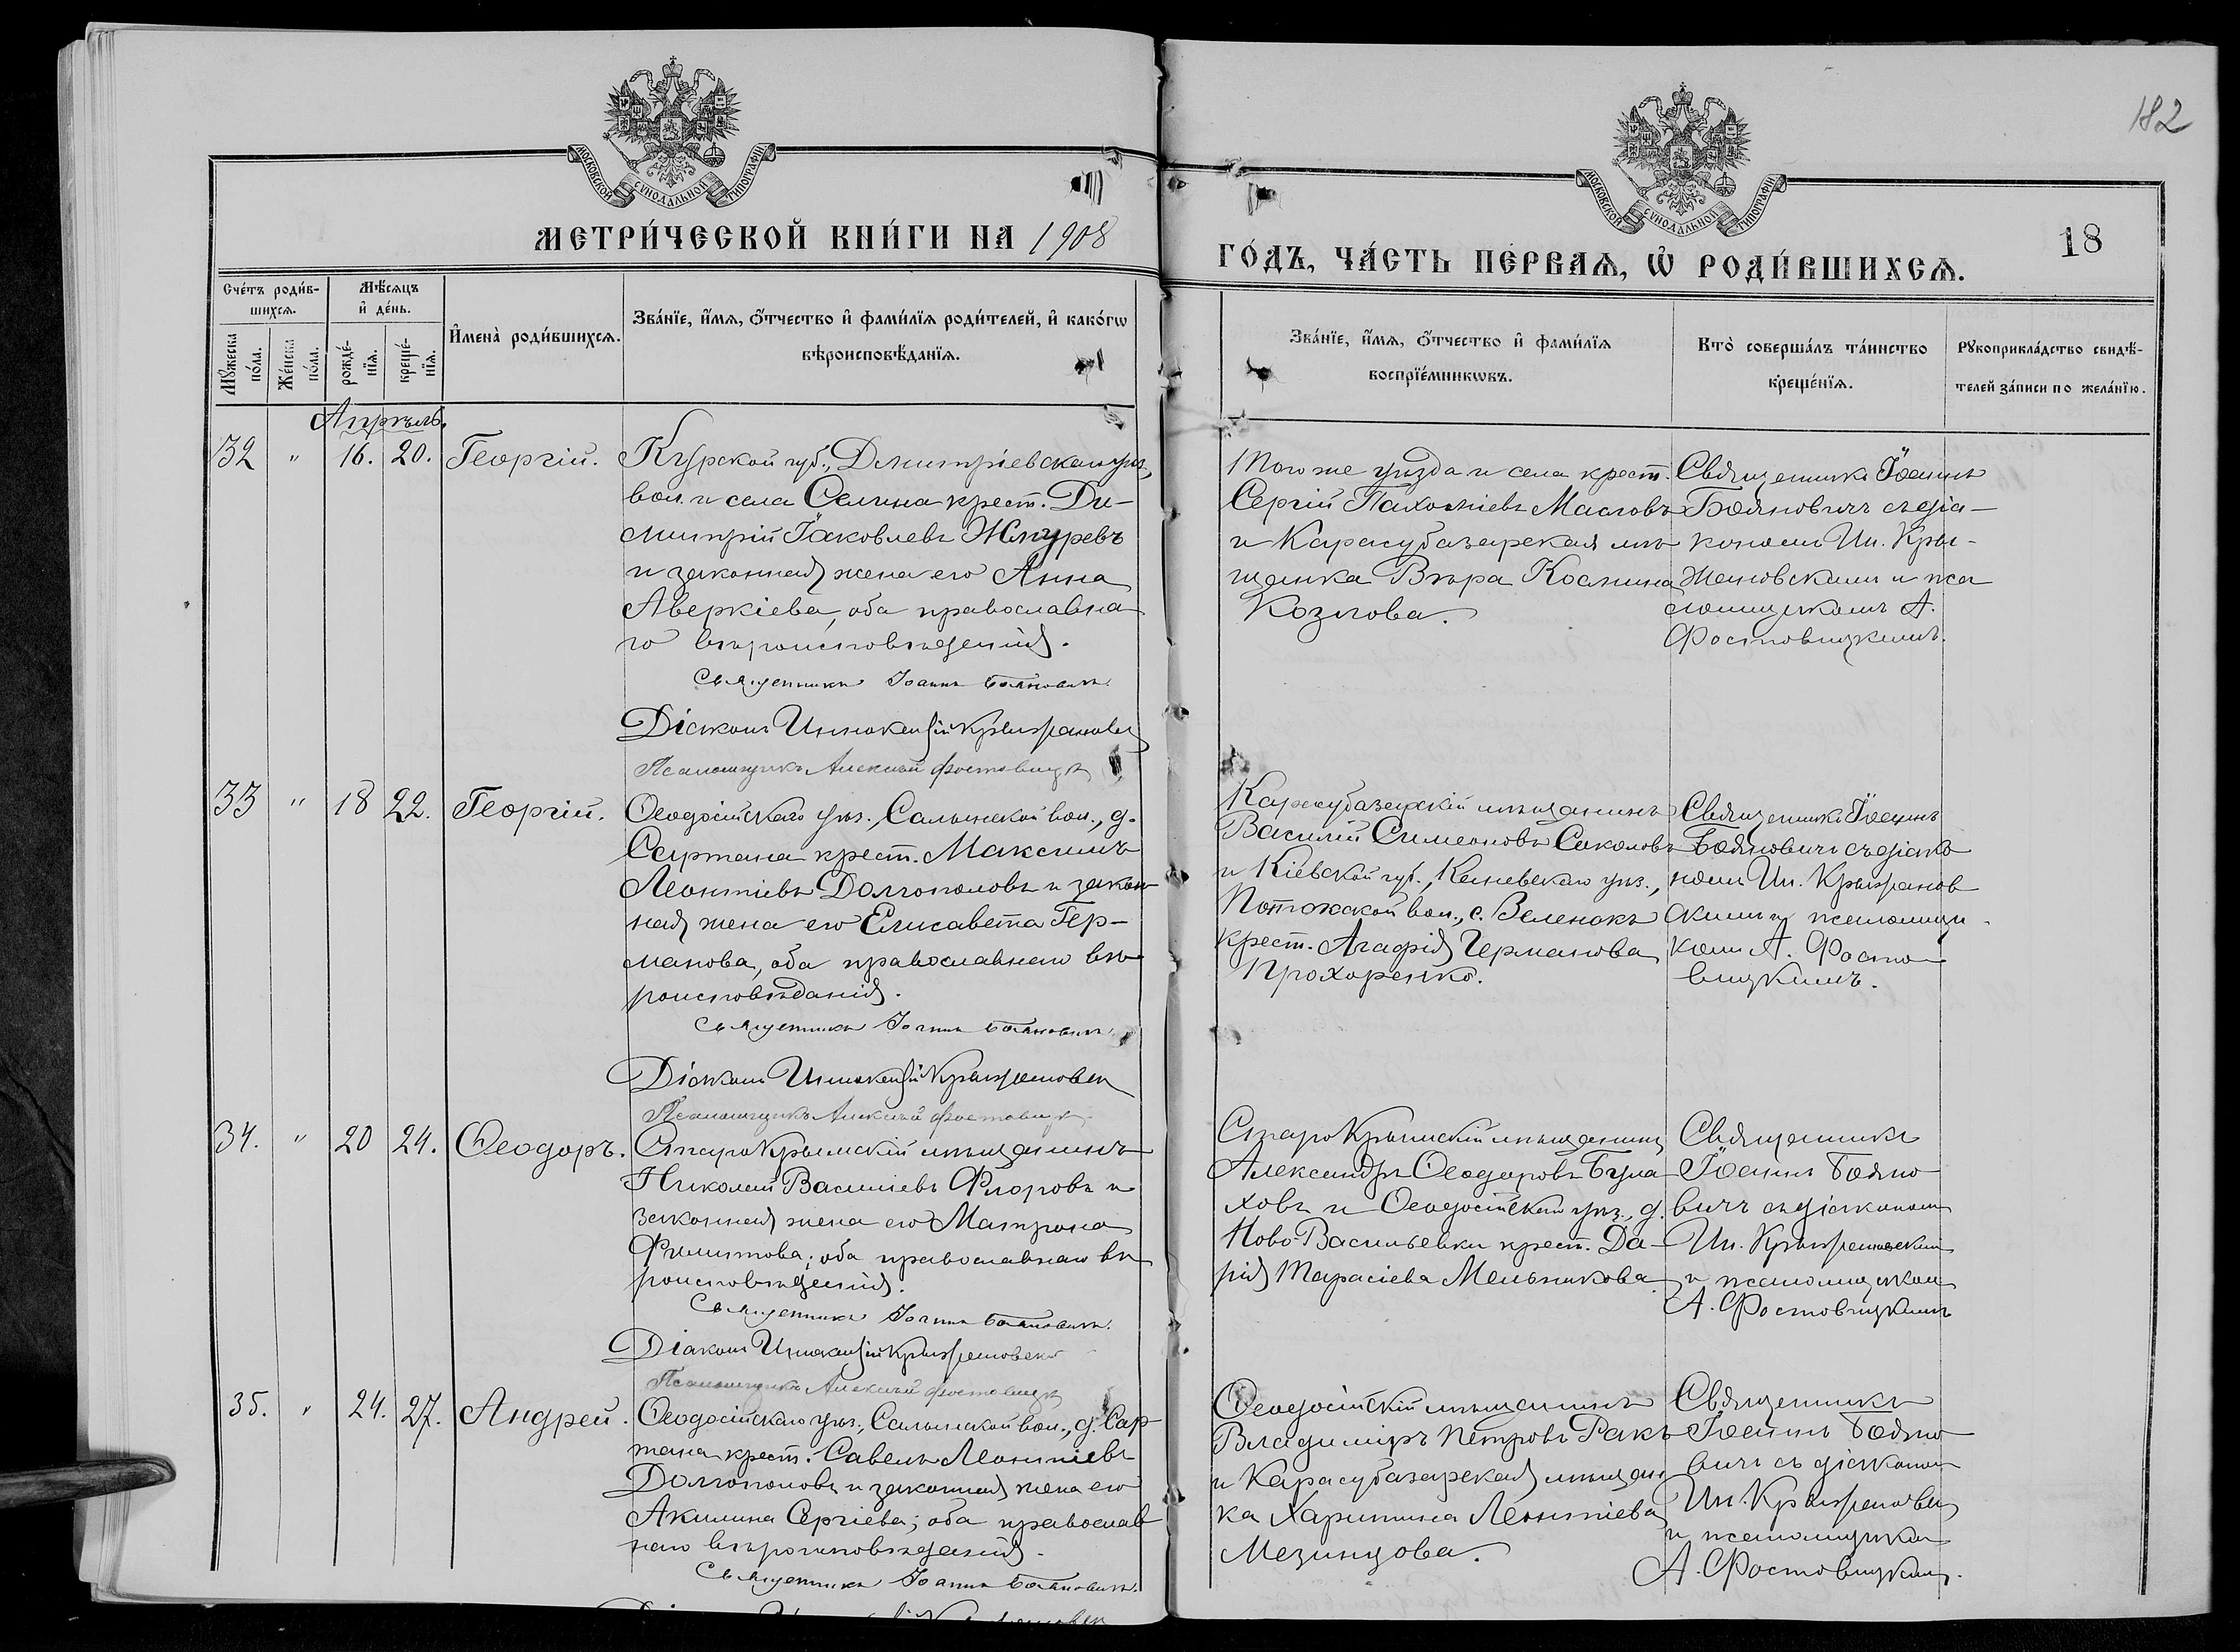 182
МОСКОВСКОЙ СѴНОДАЛЬНОЙ ТИПОГРАФІИ
МОСКОВСКОЙ СѴНОДАЛЬНОЙ ТИПОГРАФІИ
МЕТРИ́ЧЕСКОЙ КНИ́ГИ НА 1908
ГО́ДЪ, ЧА́СТЬ ПЕ́РВАЯ, Ѡ РОДИ́ВШИХСЯ.
18
Сче́тъ роди́в-
шихся.
Мѣ́сяцъ
и де́нь.
Мꙋжеска
по́ла.
Же́нска
по́ла.
рожде́-
нїя.
креще́-
нїя.
Имена̀ роди́вшихся.
Зва́нїе, и́мя, о́тчество и фами́лїя роди́телей, и како́гѡ
вѣроисповѣ́данїя.
Зва́нїе, и́мя, о́тчество и фами́лїя
воспрїе́мникѡвъ.
Кто̀ соверша́лъ та́инство
креще́нїя.
Рꙋкоприкла́дство свидѣ́-
телей за́писи по жела́нїю.
Апрѣль.
32 " 16. 20. Георгій.
Курской губ., Дмитріевскаго уѣз.,
вол. и села Селина крест. Ди-
митрій Іаковлевъ Жмуревъ
и законная жена его Анна
Аверкіева, оба православна
го вѣроисповѣданія.
Священникъ Іоаннъ Бояновичъ.
Діаконъ Иннокентій Крыжановскій
Псаломщикъ Алексій Фостовицкій
Того же уѣзда и села крест.
Сергій Пахоміевъ Масловъ
и Карасубазарская мѣ
щанка Вѣра Космина
Козлова.
Священникъ Іоаннъ
Бояновичъ съ діа-
кономъ Ин. Кры-
жановскимъ и пса
ломщикомъ А.
Фостовицкимъ.
33 " 18 22. Георгій.
Ѳеодосійскаго уѣз., Салынской вол., д.
Сартана крест. Максимъ
Леонтіевъ Долгополовъ и закон
ная жена его Елисавета Гер-
манова, оба православнаго вѣ
роисповѣданія.
Священникъ Іоаннъ Бояновичъ.
Діаконъ Иннокентій Крыжановскій
Псаломщикъ Алексій Фостовицкій
Карасубазарскій мѣщанинъ
Василій Симеоновъ Соколовъ
и Кіевской губ., Каневскаго уѣз.,
Потокской вол., с. Зеленокъ
крест. Агафія Германова
Прохоренко.
Священникъ Іоаннъ
Бояновичъ съ діако
номъ Ин. Крыжанов
скимъ и псаломщи
комъ А. Фосто
вицкимъ.
34. " 20 24. Ѳеодоръ.
Старо Крымскій мѣщанинъ
Николай Васильевъ Флоровъ и
законная жена его Матрона
Филиппова; оба православнаго вѣ
роисповѣданія.
Священникъ Іоаннъ Бояновичъ.
Діаконъ Иннокентій Крыжановскій
Псаломщикъ Алексій Фостовицкій
Старо Крымскій мѣщанинъ
Александръ Ѳеодоровъ Була
ховъ и Ѳеодосійскаго уѣз., д.
Ново-Васильевки крест. Да-
рія Тарасіева Мельникова.
Священникъ
Іоаннъ Бояно
вичъ съ діакономъ
Ин. Крыжановскимъ
и псаломщикомъ
А. Фостовицкимъ
35. " 24. 27. Андрей.
Ѳеодосійскаго уѣз., Салынской вол., д. Сар
тана крест. Савелъ Леонтіевъ
Долгополовъ и законная жена его
Акилина Сергіева; оба православ
наго вѣроисповѣданія.
Священникъ Іоаннъ Бояновичъ.
Ѳеодосійскій мѣщанинъ
Владиміръ Петровъ Ракъ
и Карасубазарская мѣщан
ка Харитина Леонтіева
Мезинцова.
Священникъ
Іоаннъ Бояно
вичъ съ діакономъ
Ин. Крыжановск
и псаломщиком
А. Фостовицким.